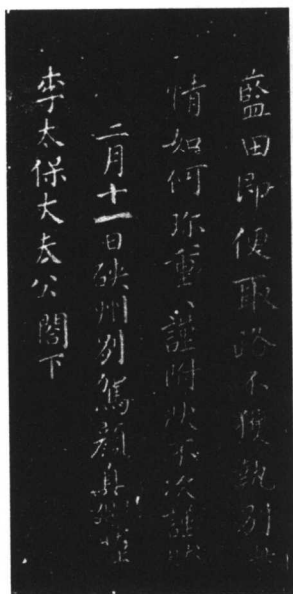 藍田即便取路不獲執別
情如何珎重〻謹附狀不次謹
二月十一日硤州別駕顏真卿
李太保大夫公閣下